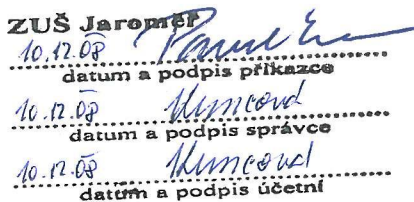 ZUŠ Jaroměř
10.12.08
datum a podpis příkazce
10.12.08 Kuncová
datum a podpis správce
10.12.08 Kuncová
datum a podpis účetní